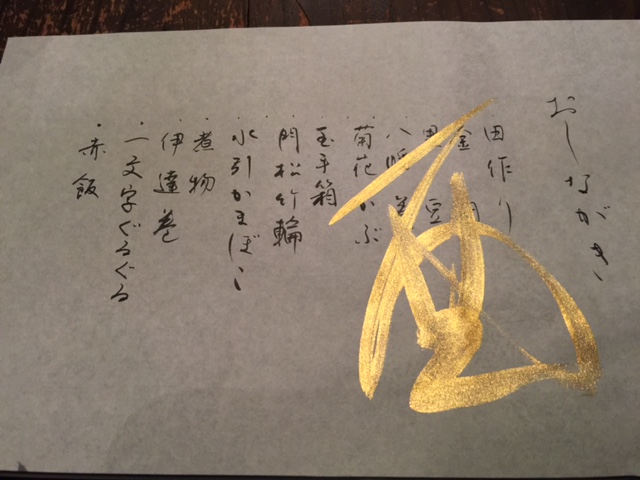 おしながき
・田作り
・金
・黒豆
・八幡
・菊花かぶ
・玉手箱
・門松竹輪
・水引かまぼこ
・煮物
・伊達巻
・一文字ぐるぐる
・赤飯